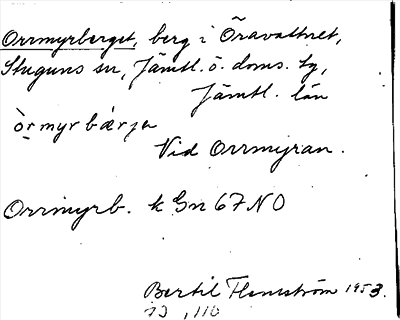 Orrmyrberget, berg i Öravattnet,
Stuguns sn, Jämtl. ö. doms. tg,
Jämtl. län
òrmyrbärje
Vid Orrmyran.
Orrmyrb. k Gn 67 NO
Bertil Flemström 1953.
13, 110